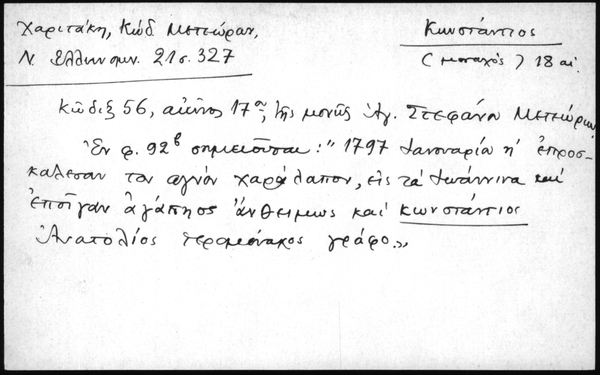 Χαριτάκη, Κώδ Μετεώρων,
Ν. Ελληνομν. 21 σ. 327
Κωνστάντιος
(μοναχός) 18 αἰ.
Κῶδιξ 56, αἰῶνος 17ου, τῆς μονῆς Ἁγ. Στεφάνου Μετεώρων
Ἐν φ. 92β σημειοῦται: "1797 Ιανουαρία η' ἐπροσ-
καλεσαν τον αγιόν χαράλαπον, εις τα Ιωάννινα καί
ἐποίγαν ἀγάπηος ἄνθειμως καί κωνστάντιος
Ἀνατολίος ιερομόναχος γράφο.»